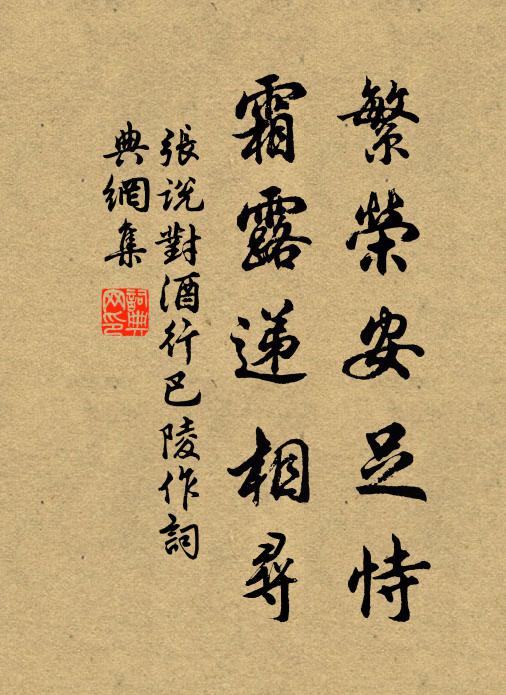 繁榮安足恃
霜露递相尋
張說對酒行巴陵作詞
典網集
詞典
网印